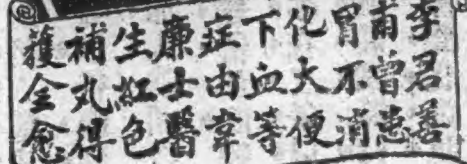 李君善
甫曾患
胃不消
化大便
下血等
症由韋
廉士醫
生紅色
補丸得
獲全愈